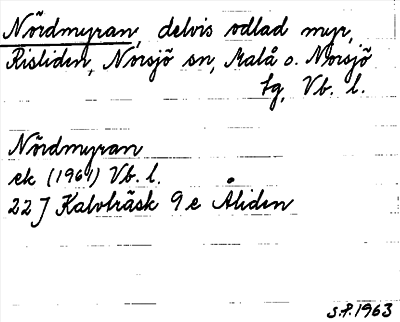 Nördmyran, delvis odlad myr,
Risliden, Norsjö sn, Malå o. Norsjö
tg, Vb. l.
Nördmyran
ek (1961) Vb. l.
22 J Kalvträsk 9 e Åliden
s.f. 1963